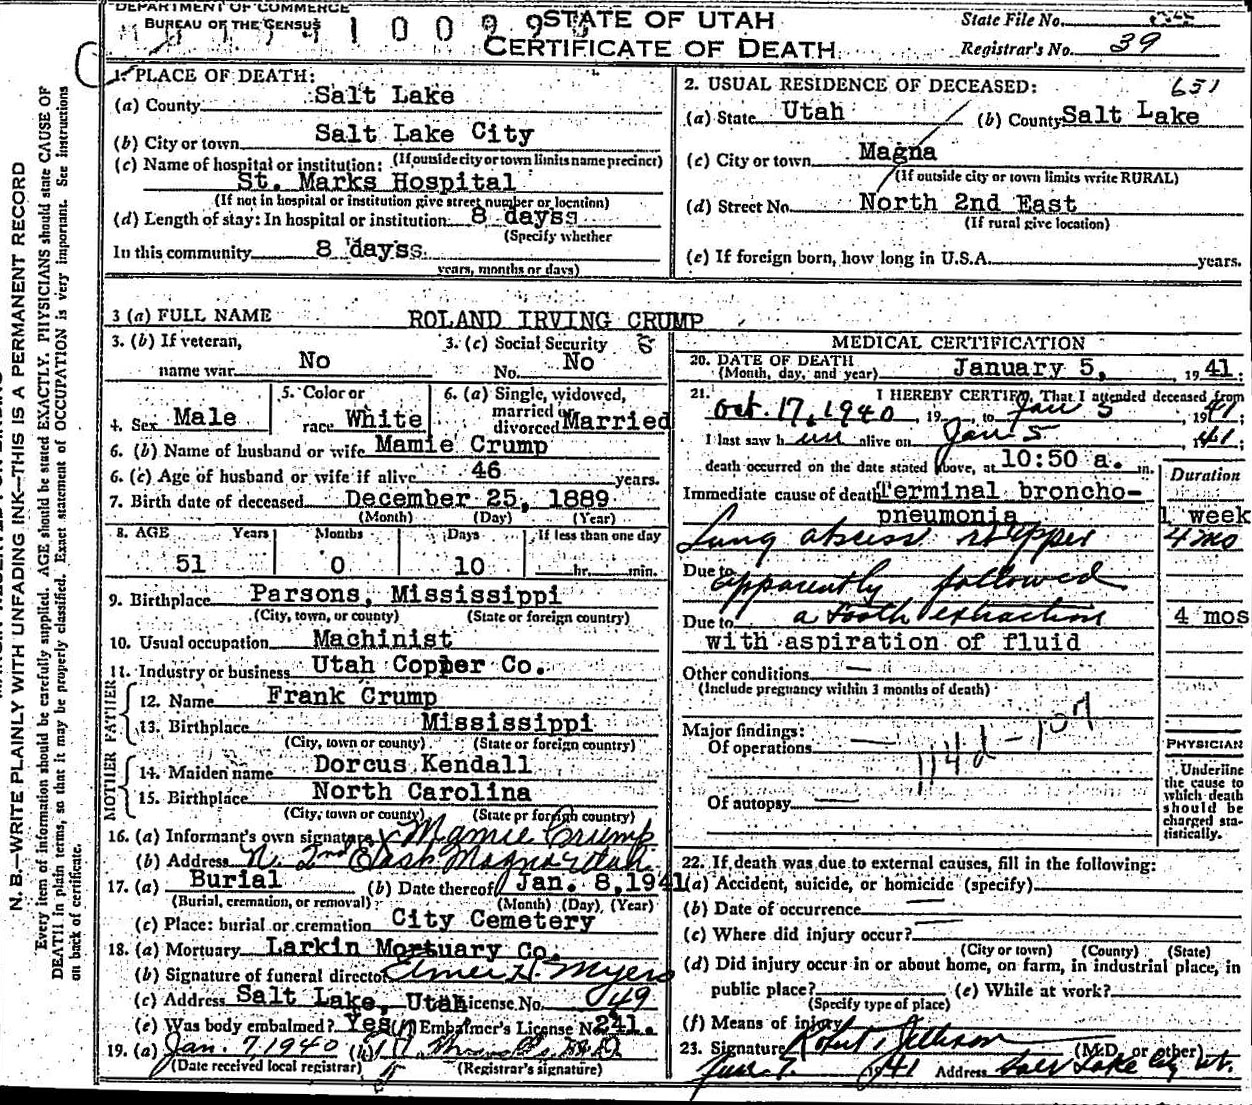 DEPARTMENT OF COMMERCE
BUREAU OF THE CENSUS
STATE OF UTAH
CERTIFICATE OF DEATH
State File No.
Registrar's No. 39
N. B.—WRITE PLAINLY WITH UNFADING INK—THIS IS A PERMANENT RECORD
Every item of information should be carefully supplied. AGE should be stated EXACTLY. PHYSICIANS should state CAUSE OF
DEATH in plain terms, so that it may be properly classified. Exact statement of OCCUPATION is very important. See instructions
on back of certificate.
1. PLACE OF DEATH:
(a) County Salt Lake
(b) City or town Salt Lake City
(If outside city or town limits name precinct)
(c) Name of hospital or institution:
St. Marks Hospital
(If not in hospital or institution give street number or location)
(d) Length of stay: In hospital or institution 8 dayss
(Specify whether
In this community 8 dayss.
years, months or days)
2. USUAL RESIDENCE OF DECEASED: 651
(a) State Utah (b) County Salt Lake
(c) City or town Magna
(If outside city or town limits write RURAL)
(d) Street No. North 2nd East
(If rural give location)
(e) If foreign born, how long in U.S.A. years.
3 (a) FULL NAME ROLAND IRVING CRUMP
3. (b) If veteran, name war No
3. (c) Social Security No. No
4. Sex Male
5. Color or race White
6. (a) Single, widowed, married or divorced Married
6. (b) Name of husband or wife Mamie Crump
6. (c) Age of husband or wife if alive 46 years.
7. Birth date of deceased December 25, 1889
(Month) (Day) (Year)
8. AGE Years Months Days If less than one day
51 0 10 hr. min.
9. Birthplace Parsons, Mississippi
(City, town, or county) (State or foreign country)
10. Usual occupation Machinist
11. Industry or business Utah Copper Co.
FATHER
12. Name Frank Crump
13. Birthplace Mississippi
(City, town or county) (State or foreign country)
MOTHER
14. Maiden name Dorcus Kendall
15. Birthplace North Carolina
(City, town or county) (State or foreign country)
16. (a) Informant's own signature X Mamie Crump
(b) Address N. 2nd East Magna Utah
17. (a) Burial (b) Date thereof Jan. 8, 1941
(Burial, cremation, or removal) (Month) (Day) (Year)
(c) Place: burial or cremation City Cemetery
18. (a) Mortuary Larkin Mortuary Co.
(b) Signature of funeral director Elmer H. Myers
(c) Address Salt Lake, Utah License No. 49
(e) Was body embalmed? Yes (f) Embalmer's License No. 241.
19. (a) Jan. 7, 1940 (b)
(Date received local registrar) (Registrar's signature)
MEDICAL CERTIFICATION
20. DATE OF DEATH
(Month, day, and year) January 5, 1941.
21. I HEREBY CERTIFY, That I attended deceased from
Oct. 17, 1940, 19 to Jan 5 1941;
I last saw him alive on Jan 5 1941
death occurred on the date stated above, at 10:50 a. m.
Duration
Immediate cause of death Terminal broncho-
pneumonia 1 week
Lung abscess rt upper 4 mo
Due to apparently followed
Due to a tooth extraction 4 mos
with aspiration of fluid
Other conditions —
(Include pregnancy within 3 months of death)
Major findings:
Of operations —
114d-107
Of autopsy —
PHYSICIAN
Underline
the cause to
which death
should be
charged sta-
tistically.
22. If death was due to external causes, fill in the following:
(a) Accident, suicide, or homicide (specify)
(b) Date of occurrence —
(c) Where did injury occur? —
(City or town) (County) (State)
(d) Did injury occur in or about home, on farm, in industrial place, in
public place? (e) While at work?
(Specify type of place)
(f) Means of injury
23. Signature Robert T. Jellison (M.D. or other)
Jan 7 1941 Address Salt Lake City Ut.